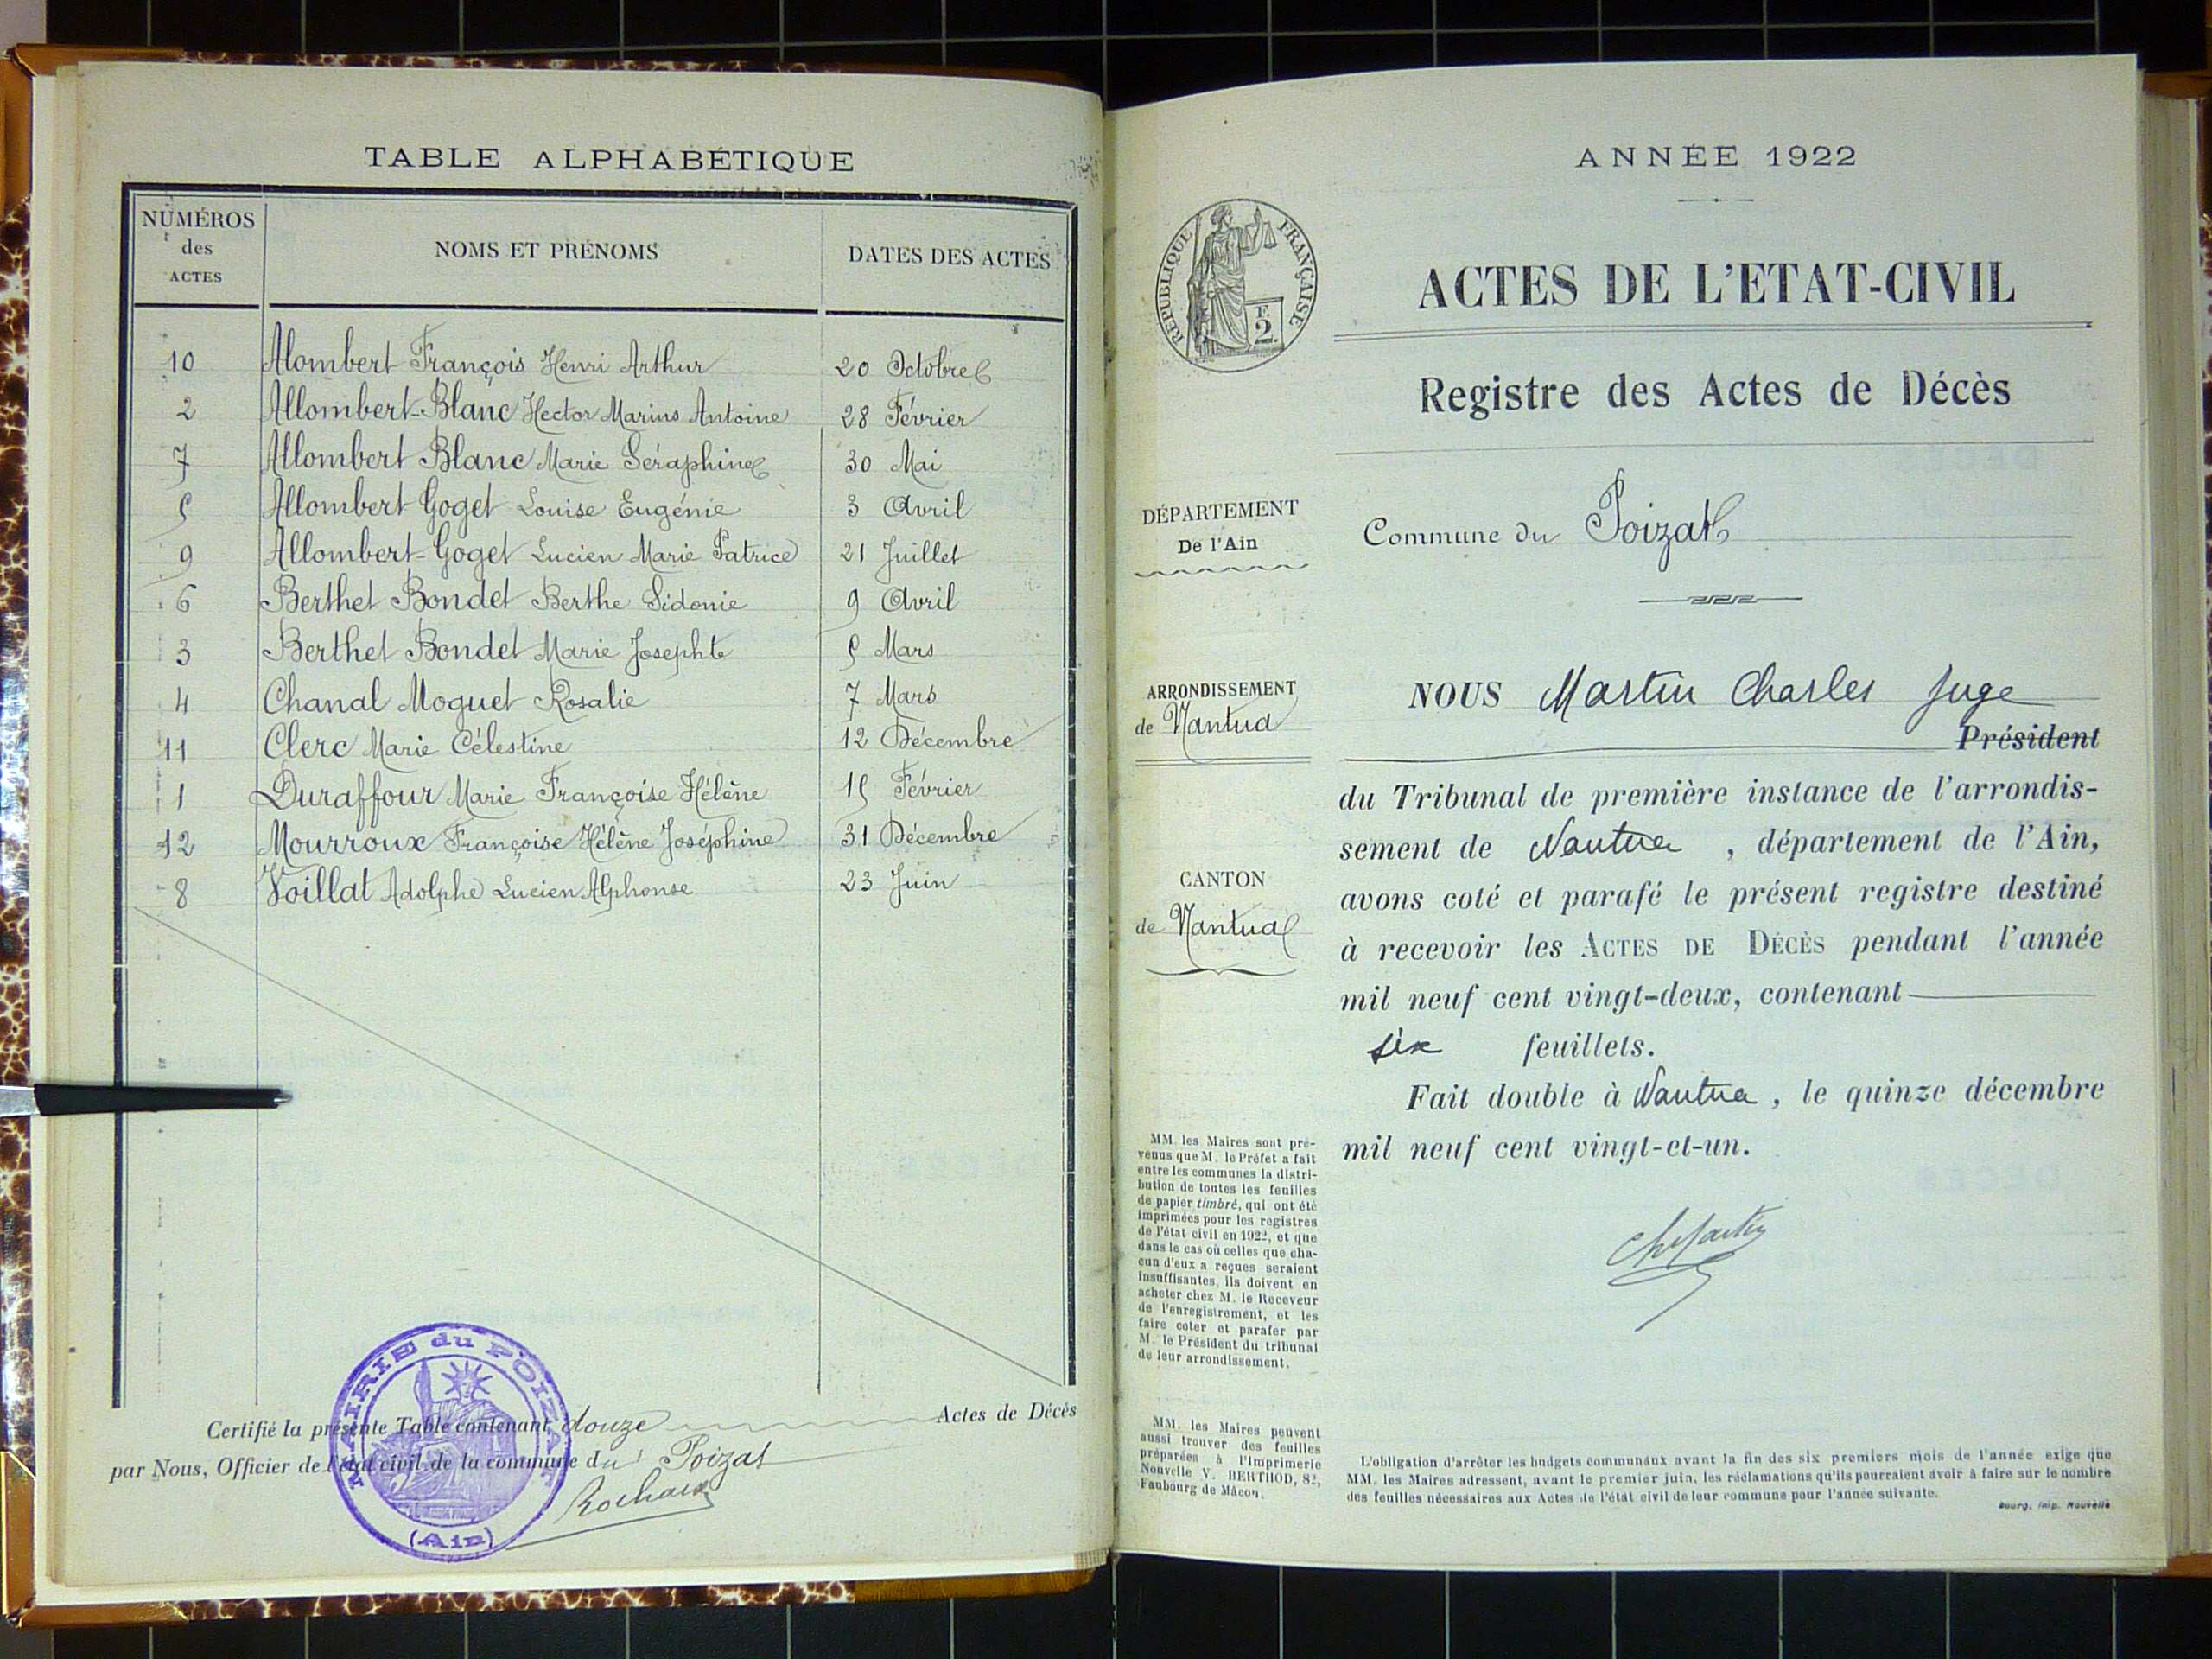 TABLE ALPHABÉTIQUE
NUMÉROS des ACTES NOMS ET PRÉNOMS DATES DES ACTES
10 Alombert François Henri Arthur 20 Octobre
2 Allombert-Blanc Hector Marius Antoine 28 Février
7 Allombert Blanc Marie Séraphine 30 Mai
5 Allombert Goget Louise Eugénie 3 Avril
9 Allombert-Goget Lucien Marie Patrice 21 Juillet
6 Berthet Bondet Berthe Sidonie 9 Avril
3 Berthet Bondet Marie Josephte 5 Mars
4 Chanal Moguet Rosalie 7 Mars
11 Clerc Marie Célestine 12 Décembre
1 Duraffour Marie Françoise Hélène 15 Février
12 Mourroux Françoise Hélène Joséphine 31 Décembre
8 Voillat Adolphe Lucien Alphonse 23 Juin
Certifié la présente Table contenant douze Actes de Décès
par Nous, Officier de l'état civil de la commune du Poizat
MAIRIE du POIZAT
(Ain)
ANNÉE 1922
RÉPUBLIQUE FRANÇAISE
2
ACTES DE L'ETAT-CIVIL
Registre des Actes de Décès
DÉPARTEMENT
De l'Ain
Commune du Poizat
ARRONDISSEMENT
de Nantua
CANTON
de Nantua
NOUS Martin Charles Juge
Président
du Tribunal de première instance de l'arrondis-
sement de Nantua, département de l'Ain,
avons coté et parafé le présent registre destiné
à recevoir les ACTES DE DÉCÈS pendant l'année
mil neuf cent vingt-deux, contenant
six feuillets.
Fait double à Nantua, le quinze décembre
mil neuf cent vingt-et-un.
Ch Martin
MM. les Maires sont pré-
venus que M. le Préfet a fait
entre les communes la distri-
bution de toutes les feuilles
de papier timbré, qui ont été
imprimées pour les registres
de l'état civil en 1922, et que
dans le cas où celles que cha-
cun d'eux a reçues seraient
insuffisantes, ils doivent en
acheter chez M. le Receveur
de l'enregistrement, et les
faire coter et parafer par
M. le Président du tribunal
de leur arrondissement.
MM. les Maires peuvent
aussi trouver des feuilles
préparées à l'Imprimerie
Nouvelle V. BERTHOD, 82,
Faubourg de Mâcon.
L'obligation d'arrêter les budgets communaux avant la fin des six premiers mois de l'année exige que
MM. les Maires adressent, avant le premier juin, les réclamations qu'ils pourraient avoir à faire sur le nombre
des feuilles nécessaires aux Actes de l'état civil de leur commune pour l'année suivante.
Bourg, Imp. Nouvelle